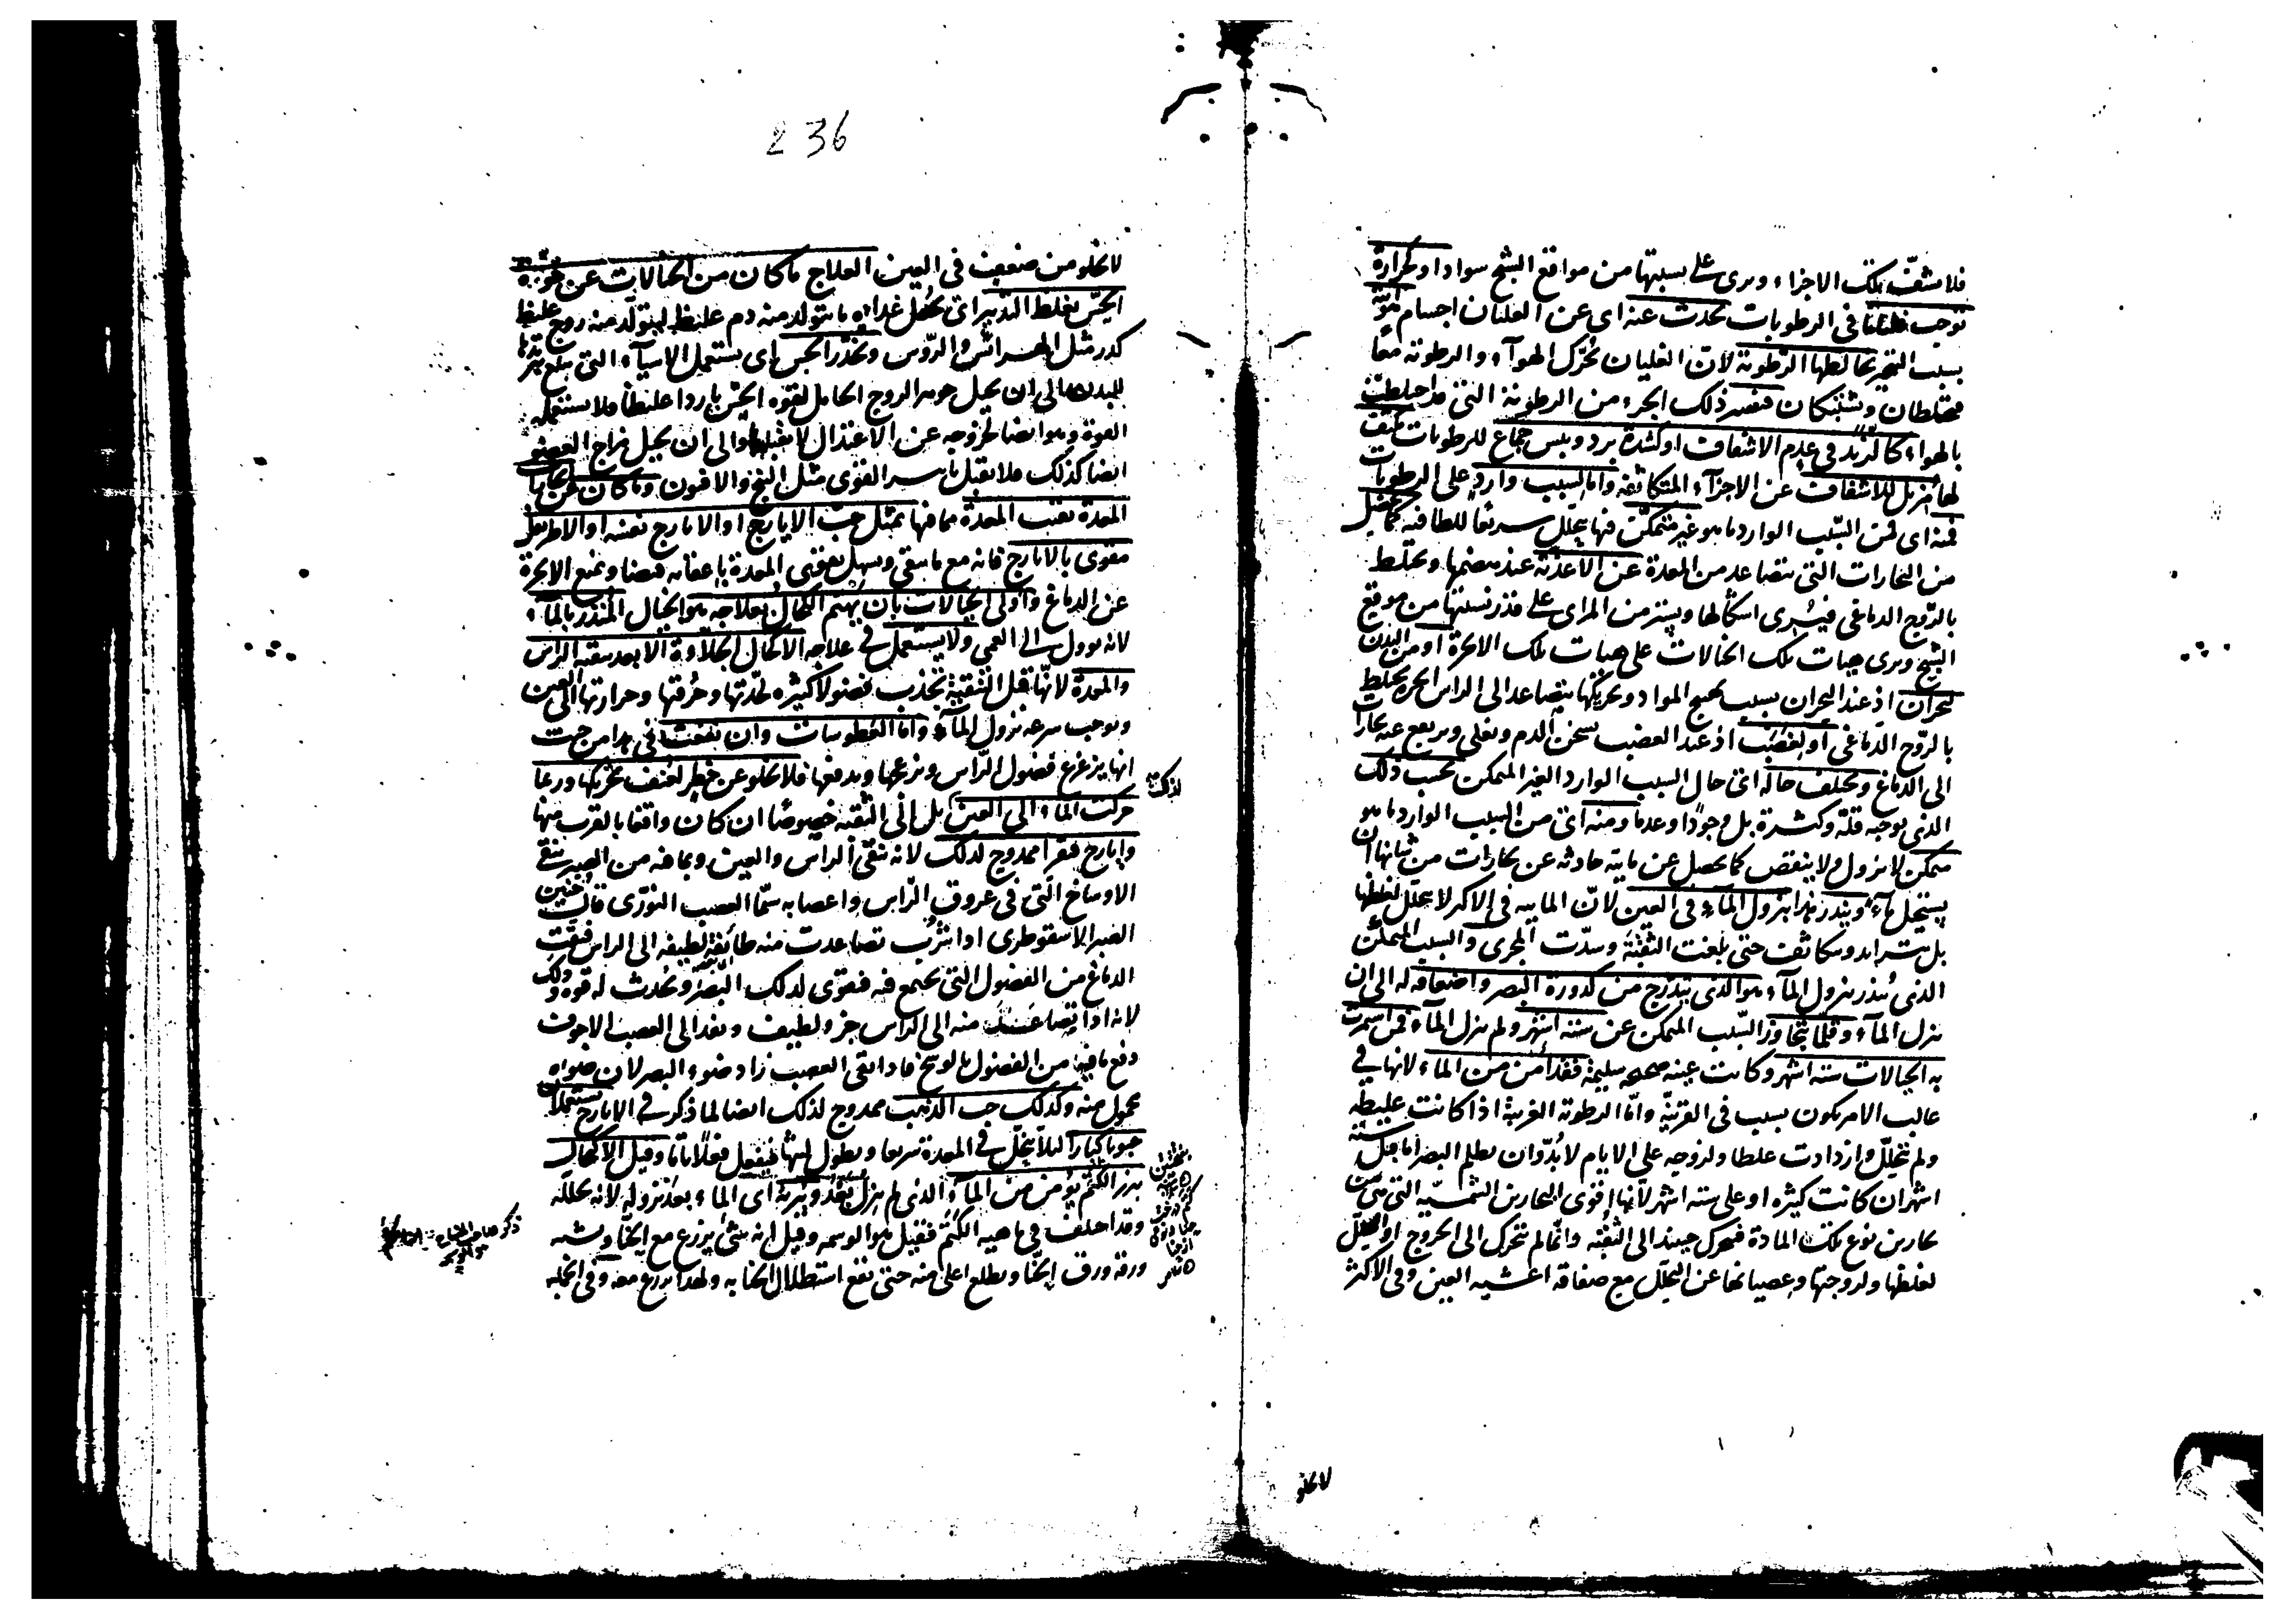 فلا تشف تلك الاجزاء ويرى على نسبتها من مواقع الشبح سوادا او لحرارة
توجب غليانا في الرطوبات تحدث عنه اى عن الغليان اجسام هوائية
بسبب التبخير تخالطها الرطوبة لان الغليان يحرك الهواء والرطوبة معا
فيختلطان ويشتبكان فيصير ذلك الجزء من الرطوبة التى قد اختلطت
بالهواء كالزبد في عدم الاشفاف او لشدة برد ويبس جماع للرطوبات مكثف
لها مزيل للاشفاف عن الاجزاء المتكاثفة واما لسبب وارد على الرطوبات
فمنه اى فمن السبب الوارد ما هو غير متمكن فيها يتحلل سريعا للطافته كما يحصل
من البخارات التى تتصاعد من المعدة عن الاغذية عند هضمها وتختلط
بالروح الدماغى فيرى اشكالها ويستر من المراى على قدر نسبتها من موقع
الشبح ويرى هيات تلك الخيالات على هيات تلك الابخرة او من البدن
لبحران اذ عند البحران بسبب تهيج المواد وتحريكها يتصاعد الى الراس ابخرة تختلط
بالروح الدماغى او لغضب اذ عند الغضب يسخن الدم ويغلى ويرتفع عنه بخارات
الى الدماغ ويختلف حاله اى حال السبب الوارد الغير المتمكن بحسب ذلك
الذى يوجبه قلة وكثرة بل وجودا وعدما ومنه اى من السبب الوارد ما هو
متمكن لا يزول ولا ينقص كما يحصل عن مائية حادثة عن بخارات من شانها ان
يستحيل ماء وينذر هذا بنزول الماء في العين لان المائية في الاكثر لا تتحلل لغلظها
بل تتزايد وتتكاثف حتى بلغت الثقبة وسدت المجرى والسبب المتمكن
الذى ينذر بنزول الماء هو الذى يتدرج من كدورة البصر واضعافه له الى ان
ينزل الماء وقلما يتجاوز السبب المتمكن عن ستة اشهر ولم ينزل الماء فمن استمرت
به الخيالات ستة اشهر وكانت عينه صحيحة سليمة فقد امن من الماء لانها في
غالب الامر يكون بسبب في القرنية واما الرطوبة الغريبة اذا كانت غليظة
ولم تتحلل وازدادت غلظا ولزوجة على الايام لا بد وان يظلم البصر اما قبل ستة
اشهر ان كانت كثيرة او على ستة اشهر لانها اقوى البحارين الشمسية التى هى من
بحارين نوع تلك المادة فيحرك حينئذ الى الثقبة وانما لم تتحرك الى الخروج او التحلل
لغلظها ولزوجتها وعصيانها عن التحلل مع صفاقة اغشية العين وفى الاكثر
لا تخلو
236
لا تخلو من ضعف في العين العلاج ما كان من الخيالات عن قوة
الحس يغلظ التدبير اى يجعل غذاؤه ما يتولد منه دم غليظ ليتولد منه روح غليظ
كدر مثل الهرائس والرؤس ويخدر الحس اى يستعمل الاشياء التى يبلغ تبريدها
للبدن الى ان يحيل جوهر الروح الحامل لقوة الحس باردا غليظا فلا يستعمله
القوة وهو ايضا لخروجه عن الاعتدال لا يقبلها والى ان يحيل مزاج العضو
ايضا كذلك فلا يقبل تاثير القوى مثل البنج والافيون وما كان عن بخارات
المعدة ينقى المعدة مما فيها بمثل حب الايارج او الايارج نفسه او الاطريفل
مقوى بالايارج فانه مع ما ينقى ويسهل يقوى المعدة باعقابه قبضا ويمنع الابخرة
عن الدماغ واولى الخيالات بان يهتم الكحال بعلاجه هو الخيال المنذر بالماء
لانه يوول الى العمى ولا يستعمل في علاجه الاكحال الجلاءة الا بعد تنقية الراس
والمعدة لانها قبل التنقية تجذب فضولا كثيرة لحدتها وحرقتها وحرارتها الى العين
وتوجب سرعة نزول الماء واما العطوسات وان نفعت في هذا من جهت
انها يزعزع فضول الراس ويزعجها ويدفعها فلا تخلو عن خطر لعنف تحريكها وربما
حركت الماء الى العين بل الى الثقبة خصوصا ان كان واقفا بالقرب منها
وايارج فيقرا ممدوح لذلك لانه ينقى الراس والعين وبما فيه من الصبر ينقى
الاوساخ التى في عروق الراس واعصابه سيما العصب النورى قال حنين
الصبر الاسقوطرى اذا شرب تصاعدت منه طائفة لطيفة الى الراس فنقت
الدماغ من الفضول التى تجتمع فيه فيقوى لذلك البصر ويحدث له قوة وذلك
لانه اذا تصاعد منه الى الراس جزء لطيف ونفذ الى العصب الاجوف
دفع ما فيه من الفضول بالوسخ فاذا نقى العصب زاد ضوء البصر لان ضوءه
محمول منه وكذلك حب الذهب ممدوح لذلك ايضا لما ذكر في الايارج يستعملان
حبوبا كبارا لئلا يتحلل في المعدة سريعا ويطول لبثها فيفعل فعلا تاما وقيل الاكتحال
ببزر الكتم يؤمن من الماء الذى لم ينزل بعد ويبرئه اى الماء بعد نزوله لانه يحلله
وقد اختلف في ماهية الكتم فقيل هو الوسمة وقيل انه شئ يزرع مع الحنا ويشبه
ورقه ورق الحنا ويطلع اعلى منه حتى يقع استظلال الحنا به ولهذا يزرع معه وفي الجملة
لذلك